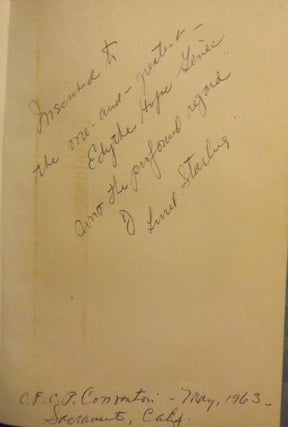 Inscribed to
the one-and-greatest-
Edythe Hope Genee
with the profound regard
of Starling.
C.S.C.P. Convention - May, 1963-
Sacramento, Calif.